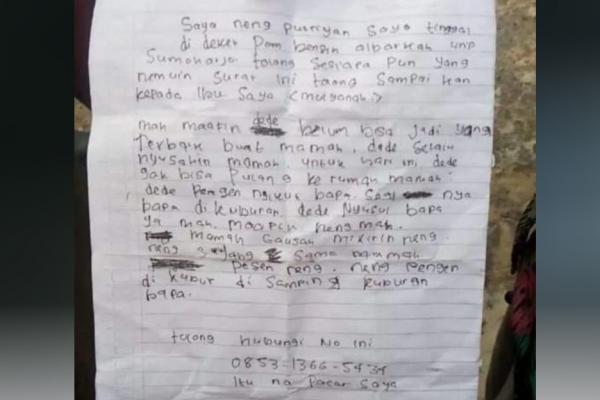 Saya neng putriyan saya tinggal
di deket Pom bensin alparkah unp
Sumoharjo tolong Sesiapa Pun yang
nemuin Surat ini tolong Sampaikan
kepada Ibu Saya (muryanah)
mah maafin dede belum bisa jadi yang
terbaik buat mamah. dede selalu
nyusahin mamah. untuk hari ini, dede
gak bisa pulang ke rumah mamah.
dede pengen ngikut bapa. nya
bapa di kuburan. dede nyusul bapa
ya mah. maapin neng mah.
mamah gausah mikirin neng.
neng sayang sama mamah.
pesen neng. neng pengen
di kubur di samping kuburan
bapa.
tolong hubungi No ini
0853-1366-5434
Itu na Pacar Saya